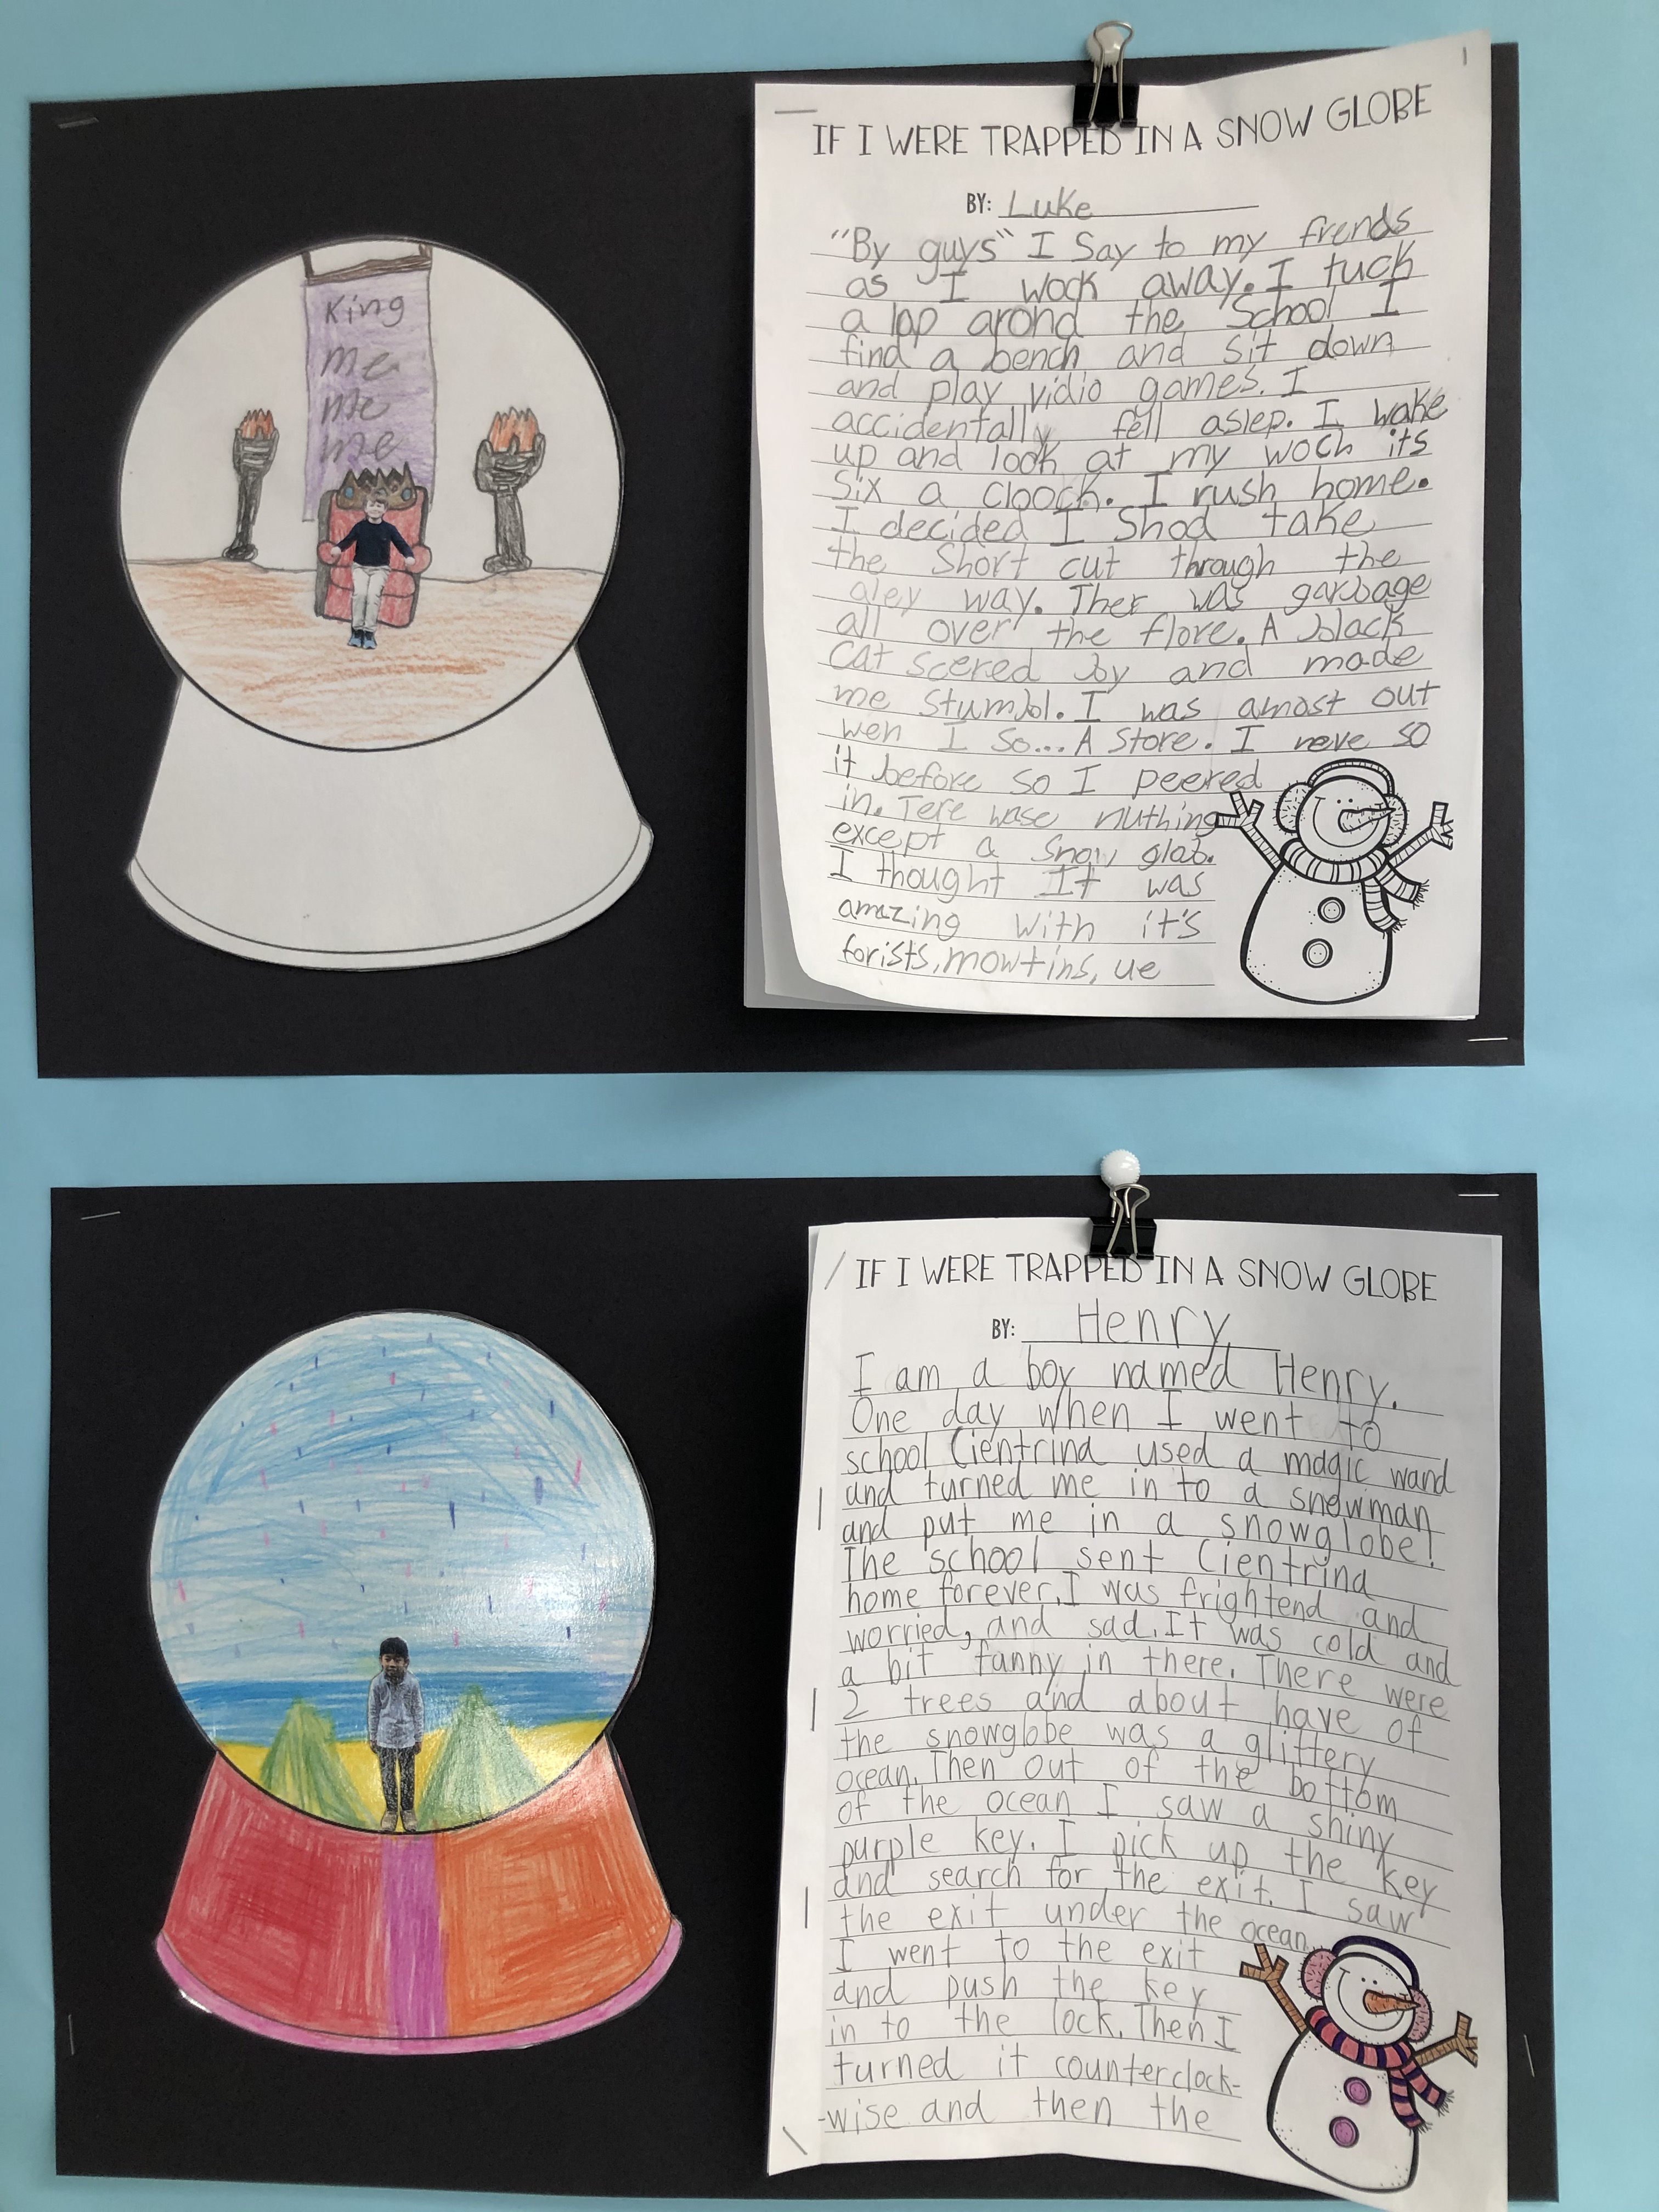 King
me
me
me
IF I WERE TRAPPED IN A SNOW GLOBE
BY: Luke
"By guys" I Say to my frends
as I wock away. I tuck
a lap arond the School I
find a bench and sit down
and play vidio games. I
accidentally fell aslep. I wake
up and look at my woch its
six a clooch. I rush home.
I decided I Shod take
the Short cut through the
aley way. Ther was garbage
all over the flore. A black
cat scered by and made
me stumbl. I was amost out
wen I So... A Store. I neve so
it before so I peered
in. Tere wase nuthing
except a snow glab.
I thought It was
amazing with it's
forists, mowtins, ue
IF I WERE TRAPPED IN A SNOW GLOBE
BY: Henry
I am a boy named Henry.
One day when I went to
school Cientrina used a magic wand
and turned me in to a snowman
and put me in a snowglobe!
The school sent Cientrina
home forever. I was frightend and
worried, and sad. It was cold and
a bit fanny in there. There were
2 trees and about have of
the snowglobe was a glittery
ocean. Then out of the bottom
of the ocean I saw a shiny
purple key. I pick up the key
and search for the exit. I saw
the exit under the ocean.
I went to the exit
and push the key
in to the lock. Then I
turned it counterclock-
-wise and then the